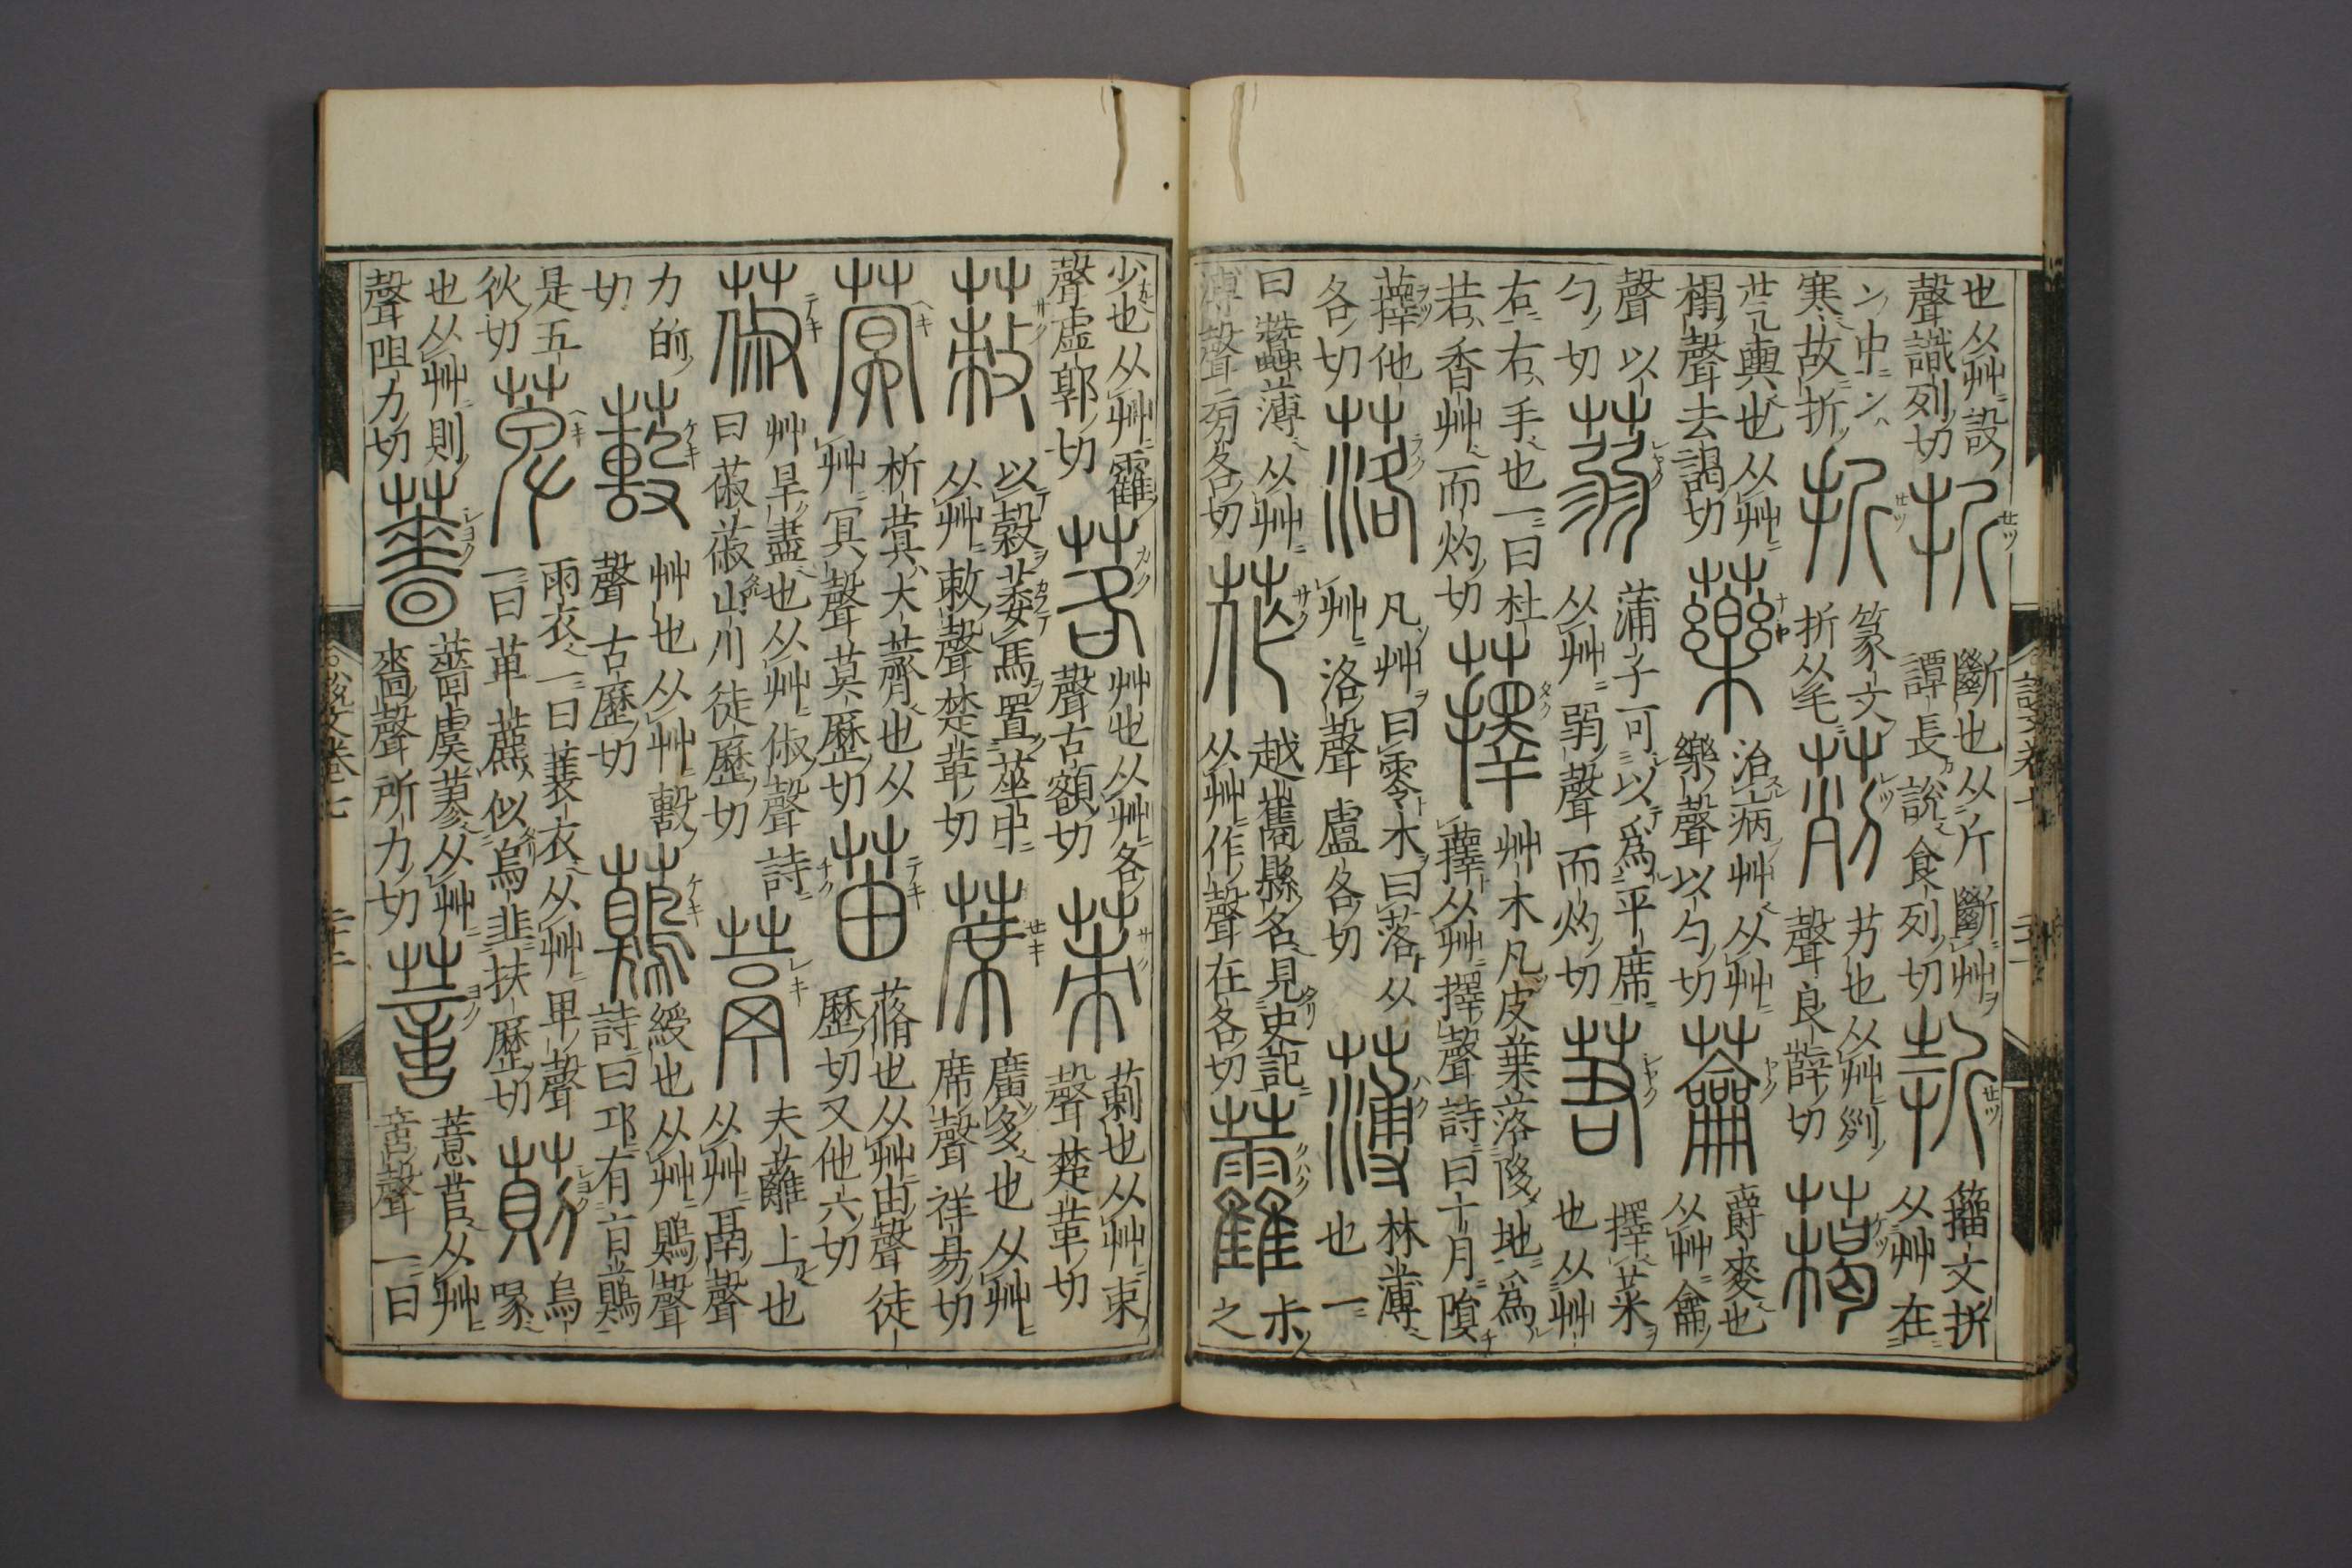 也从艸設聲識列切 𣂚 斷也从斤斷艸譚長說食列切 𣂔 籒文折从艸在
仌中仌寒故折 折 篆文折从手 茢 芀也从艸列聲良薛切 藒
芞輿也从艸楬聲去謁切 藥 治病艸从艸樂聲以勺切 蘥 爵麥也从艸龠
聲以勺切 蒻 蒲子可以爲平席从艸弱聲而灼切 若 擇菜也从艸
右右手也一曰杜若香艸而灼切 蘀 艸木凡皮葉落陊地爲蘀从艸擇聲詩曰十月隕
蘀他各切 落 凡艸曰零木曰落从艸洛聲盧各切 薄 林薄也一
曰蠶薄从艸溥聲旁各切 莋 越嶲縣名見史記从艸作聲在各切 藿 尗之
少也从艸靃聲虛郭切 茖 艸也从艸各聲古額切 茦 莿也从艸朿聲楚革切
蓛 以穀萎馬置莝中从艸敕聲楚革切 蓆 廣多也从艸席聲祥易切
蓂 析蓂大薺也从艸冥聲莫歷切 苖 蓨也从艸由聲徒歷切又他六切
蔋 艸旱盡也从艸俶聲詩曰蔋蔋山川徒歷切 䓪 夫蘺上也从艸鬲聲
力的切 艸也从艸毄聲古歷切 綬也从艸鶂聲詩曰邛有旨鷊
是五狄切 萆 雨衣一曰蓑衣从艸卑聲一曰萆藨似烏韭扶歷切 萴 烏喙
也从艸則聲阻力切 薔 薔虞蓼从艸嗇聲所力切 薏苢从艸啻聲一曰
說文卷七